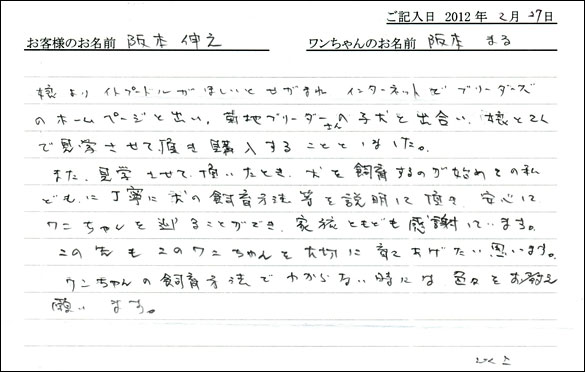 ご記入日 2012年 2月 27日
お客様のお名前 阪本 伸之 ワンちゃんのお名前 阪本 まる
娘より トイプードルがほしいとせがまれ インターネットで ブリーダーズ
のホームページと出い、菊地ブリーダーさんの子犬と出合い、娘と2人
で見学させて頂き購入することとしました。
また、見学させて頂いたとき、犬を飼育するのが始めての私
どもに丁寧に犬の飼育方法等を説明して頂き、安心して
ワンちゃんを迎ることができ、家族ともども感謝しています。
この先もこのワンちゃんを大切に育てあげたい思います。
ワンちゃんの飼育方法でわからない時には色々とお教え
願います。